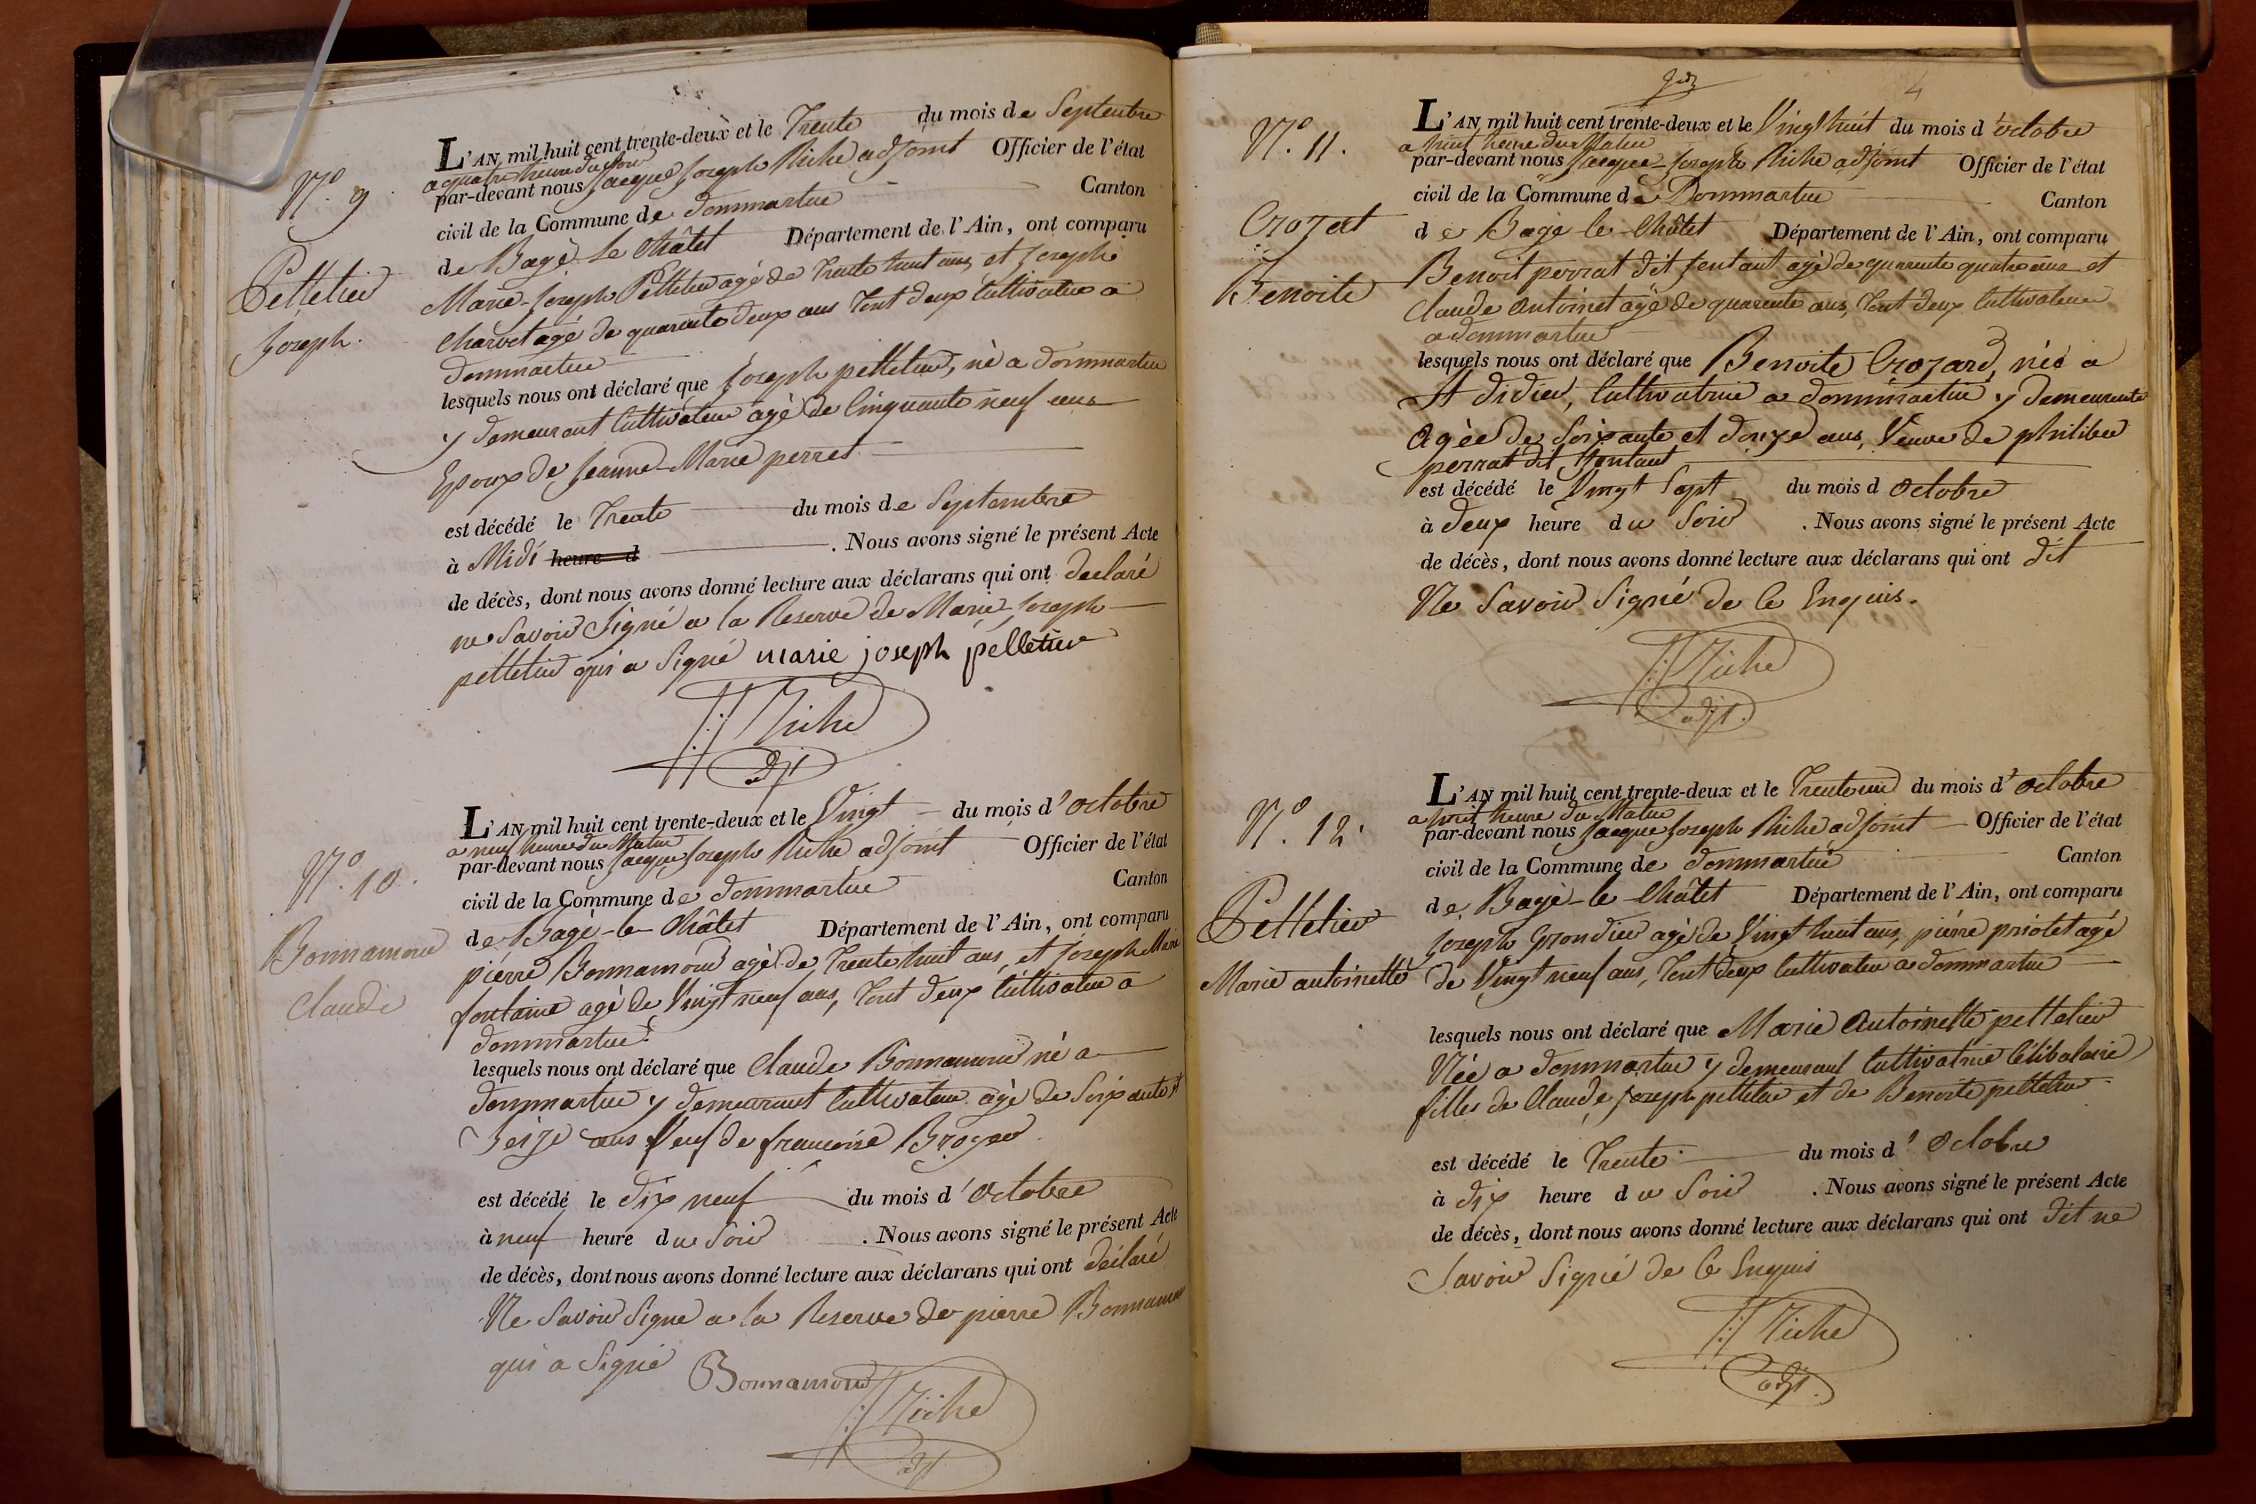 N.o 9
Pelletier
Joseph.
L'AN mil huit cent trente-deux et le Trente du mois de Septembre
a quatre heure du Soir
par-devant nous Jacque Joseph Riche adjoint Officier de l'état
civil de la Commune de dommartin Canton
de Bagé le Châtel Département de l'Ain, ont comparu
Marie-Joseph Pelletier agé de Trente huit ans et Joseph
Charvet agé de quarente deux ans tout deux Cultivateur a
dommartin
lesquels nous ont déclaré que Joseph pelletier, né a dommartin
y demeurant Cultivateur agé de Cinquante neuf ans
Epoux de Jeanne-Marie perret
est décédé le Trente du mois de Septembre
à Midi heure d . Nous avons signé le présent Acte
de décès, dont nous avons donné lecture aux déclarans qui ont declaré
ne Savoir Signé a la Reserve de Marie-Joseph
pelletier qui a Signé marie joseph pelletier
Riche
adjt
N.o 10.
Bonnamour
Claude
L'AN mil huit cent trente-deux et le Vingt du mois d'octobre
a neuf heure du Matin
par-devant nous Jacque Joseph Riche adjoint Officier de l'état
civil de la Commune de dommartin Canton
de Bagé-le-Châtel Département de l'Ain, ont comparu
piérre Bonnamour agé de Trente huit ans, et Joseph Marie
fontaine agé de Vingt neuf ans, tout deux Cultivateur a
dommartin
lesquels nous ont déclaré que Claude Bonnamour né a
dommartin y demeurant Cultivateur agé de Soixante et
Seize ans Veuf de francoise Broyer
est décédé le dix neuf du mois d'octobre
à neuf heure du Soir . Nous avons signé le présent Acte
de décès, dont nous avons donné lecture aux déclarans qui ont déclaré
Ne Savoir Signe a la Reserve de pierre Bonnamour
qui a Signé Bonnamour
Riche
adjt
4
N.o 11.
Crozet
Benoite
L'AN mil huit cent trente-deux et le Vingt huit du mois d'octobre
a huit heure du Matin
par-devant nous Jacque-Joseph Riche adjoint Officier de l'état
civil de la Commune de Dommartin Canton
de Bagé-le-Châtel Département de l'Ain, ont comparu
Benoit perrat dit fontant agé de quarente quatre ans et
Claude Antoinet agé de quarente ans, tout deux Cultivateur
a dommartin
lesquels nous ont déclaré que Benoite Crozard, née a
St didier, Cultivatrice a dommartin y demeurante
Agée de Soixante et douze ans, Veuve de philiber
perrat dit fontant
est décédé le Vingt Sept du mois d octobre
à deux heure du Soir . Nous avons signé le présent Acte
de décès, dont nous avons donné lecture aux déclarans qui ont dit
Ne Savoir Signé de Ce Enquis.
Riche
adjt.
N.o 12.
Pelletier
Marie antoinette
L'AN mil huit cent trente-deux et le Trente un du mois d'octobre
a huit heure du Matin
par-devant nous Jacque Joseph Riche adjoint Officier de l'état
civil de la Commune de dommartin Canton
de Bagé-le-Châtel Département de l'Ain, ont comparu
Joseph Grondier agé de Vingt huit ans, piérre priolet agé
de Vingt neuf ans, tout deux Cultivateur a dommartin
lesquels nous ont déclaré que Marie Antoinette pelletier
Née a dommartin y demeurant Cultivatrice Célibataire
filles de Claude Joseph pelletier et de Benoite pelletier
est décédé le Trente du mois d'Octobre
à dix heure du Soir . Nous avons signé le présent Acte
de décès, dont nous avons donné lecture aux déclarans qui ont dit ne
Savoir Signé de Ce Enquis
Riche
adjt.